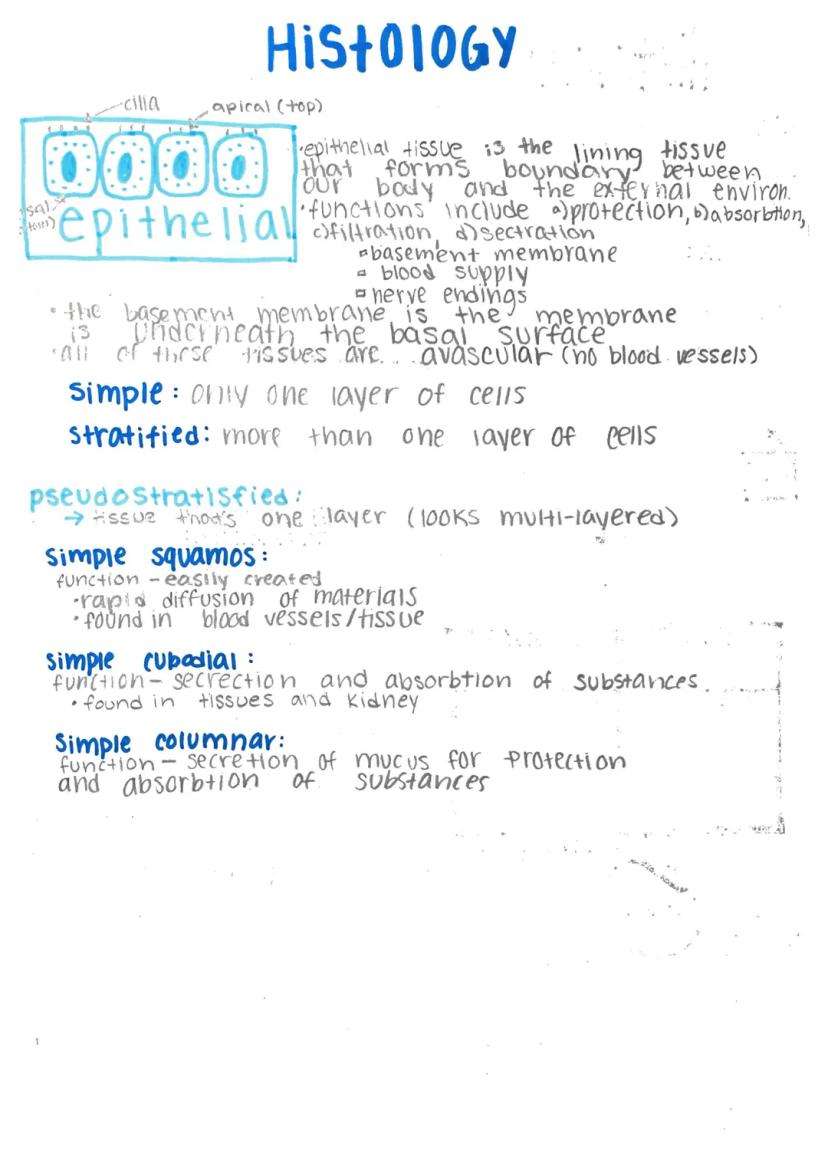 HiStOlOGY
cilia
apical (top)
epithelial
•epithelial tissue is the lining tissue
that forms boundary between
our body and the external environ.
•functions include a)protection, b)absorbtion,
c)filtration, d)sectration
▫basement membrane
▫ blood supply
▫nerve endings
• the basement membrane is the membrane
is underneath the basal surface
•all of these tissues are... avascular (no blood vessels)
Simple: only one layer of cells
stratified: more than one layer of cells
pseudostratisfied:
→ tissue one layer (looks multi-layered)
Simple squamos:
function - easily created
•rapid diffusion of materials
•found in blood vessels/tissue
simple cubodial:
function - secrection and absorbtion of substances.
• found in tissues and kidney
Simple columnar:
function - secretion of mucus for protection
and absorbtion of substances